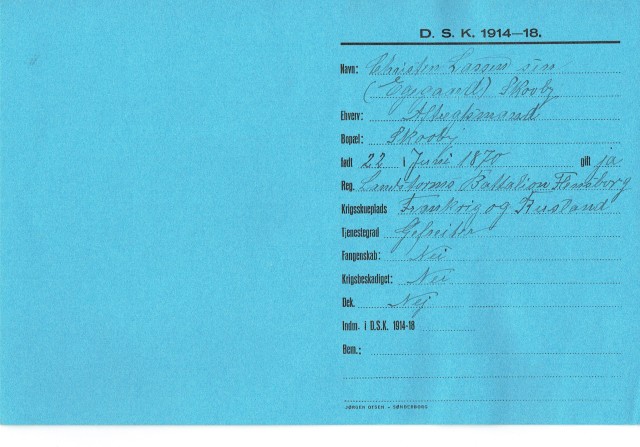 D. S. K. 1914—18.
Navn: Christen Lassen sen
(Egegaard) Skovby
Ehverv: Aftægtsmand
Bopæl: Skovby
født 22 i Juli 1870 gift ja
Reg. Landstorms Battalion Flensborg
Krigsskueplads Frankrig og Rusland
Tjenestegrad Gefreiter
Fangenskab: Nei
Krigsbeskadiget: Nei
Dek. Nej
Indm. i D.S.K. 1914-18
Bem.:
JØRGEN OTSEN – SØNDERBORG